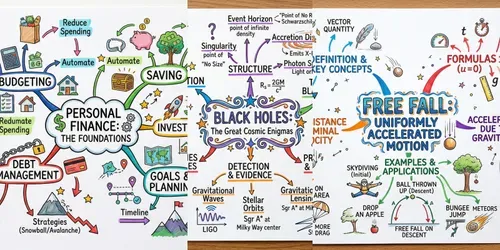 Reduce
Spending
Automate
Automate
BUDGETING
SAVING
PERSONAL
FINANCE:
THE FOUNDATIONS
Redumate
Spending
INVEST
DEBT
MANAGEMENT
GOALS &
PLANNING
Strategies
(Snowball/Avalanche)
Timeline
Event Horizon
"Point of No R
Schwarzschil
point of infinite
density
Singularity
point
"No Size"
Accretion Di
Emits X-
Photon S
Light or
STRUCTURE
TION
BLACK HOLES:
The Great Cosmic Enigmas
DETECTION
& EVIDENCE
Gravitational
Waves
LIGO
Stellar
Orbits
Sgr A* at
Milky Way center
Gravitatic
Lensing
Sgr A* at M
VECTOR
QUANTITY
DEFINITION &
KEY CONCEPTS
t
g
FORMULAS
(u=0)
FREE FALL:
UNIFORMLY
ACCELERATED
MOTION
ISTANCE
MINAL
OCITY
ACCELER
DUE
GRAVIT
EXAMPLES &
APPLICATIONS
SKYDIVING
(Initial)
BALL THROWN
UP (Descent)
DROP
AN APPLE
FREE FALL ON
DESCENT
BUNGEE
JUMP
METEORS
AREA
MORE
DRAG